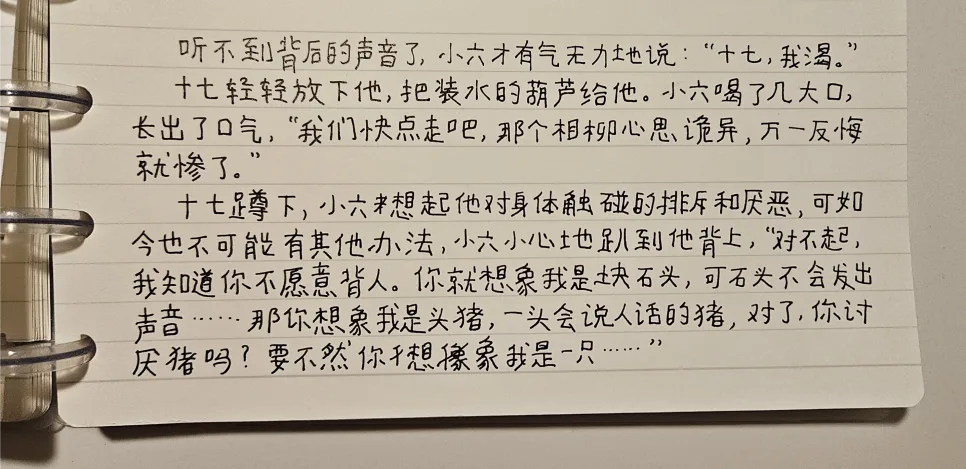 听不到背后的声音了,小六才有气无力地说:“十七,我渴。”
十七轻轻放下他,把装水的葫芦给他。小六喝了几大口,
长出了口气,“我们快点走吧,那个相柳心思诡异,万一反悔
就惨了。”
十七蹲下,小六想起他对身体触碰的排斥和厌恶,可如
今也不可能有其他办法,小六小心地趴到他背上,“对不起,
我知道你不愿意背人。你就想象我是块石头,可石头不会发出
声音……那你想象我是头猪,一头会说人话的猪,对了,你讨
厌猪吗?要不然你想象我是一只……”